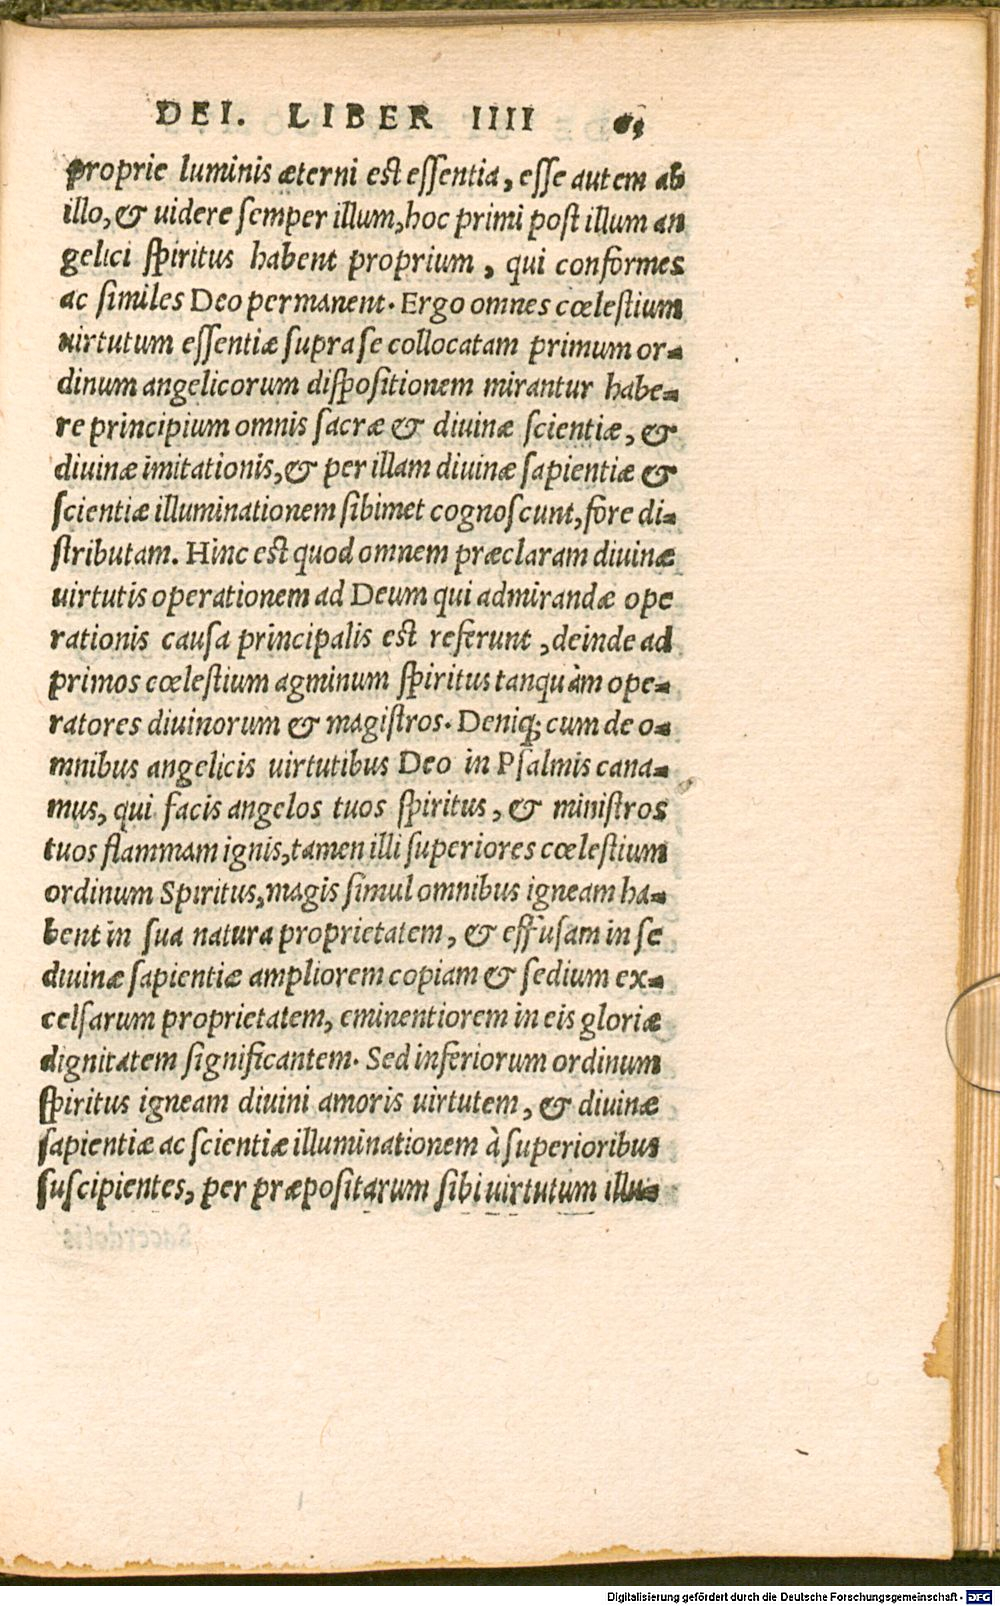 DEI. LIBER IIII
proprie luminis æterni est essentia, esse autem ab
illo, & uidere semper illum, hoc primi post illum an
gelici spiritus habent proprium, qui conformes
ac similes Deo permanent. Ergo omnes cœlestium
uirtutum essentiæ supra se collocatam primum or-
dinum angelicorum dispositionem mirantur habe-
re principium omnis sacræ & diuinæ scientiæ, &
diuinæ imitationis, & per illam diuinæ sapientiæ &
scientiæ illuminationem sibimet cognoscunt, fore di-
stributam. Hinc est quod omnem præclaram diuinæ
uirtutis operationem ad Deum qui admirandæ ope
rationis causa principalis est referunt, deinde ad
primos cœlestium agminum spiritus tanquàm ope-
ratores diuinorum & magistros. Deniq; cum de o-
mnibus angelicis uirtutibus Deo in Psalmis cana-
mus, qui facis angelos tuos spiritus, & ministros
tuos flammam ignis, tamen illi superiores cœlestium
ordinum Spiritus, magis simul omnibus igneam ha-
bent in sua natura proprietatem, & effusam in se
diuinæ sapientiæ ampliorem copiam & sedium ex-
celsarum proprietatem, eminentiorem in eis gloriæ
dignitatem significantem. Sed inferiorum ordinum
spiritus igneam diuini amoris uirtutem, & diuinæ
sapientiæ ac scientiæ illuminationem à superioribus
suscipientes, per præpositarum sibi uirtutum illu-
Digitalisierung gefördert durch die Deutsche Forschungsgemeinschaft - DFG